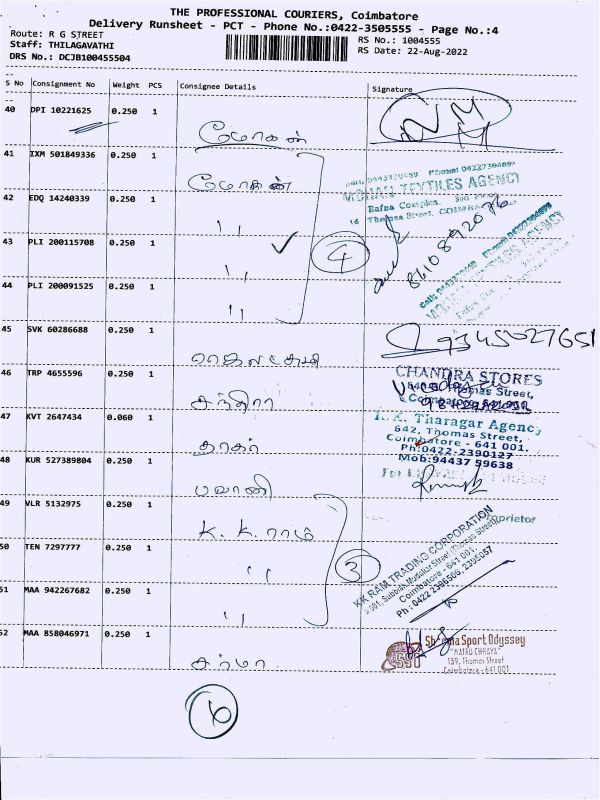 THE PROFESSIONAL COURIERS, Coimbatore
Delivery Runsheet - PCT - Phone No.:0422-3505555 - Page No.:4
Route: R G STREET
RS No.: 1004555
Staff: THILAGAVATHI
RS Date: 22-Aug-2022
DRS No.: DCJB100455504
S No Consignment No Weight PCS Consignee Details Signature
40 DPI 10221625 0.250 1
மோகன்
41 IXM 501849336 0.250 1
மோகன்
MOHAN TEXTILES AGENCY
Bafna Complex,
16 Thomas Street, COIMBA
42 EDQ 14240339 0.250 1
,,
8610892076
43 PLI 200115708 0.250 1
,,
4
TEXTILES AGENCY
44 PLI 200091525 0.250 1
,,
45 SVK 60286688 0.250 1
9345027651
46 TRP 4655596 0.250 1
சந்திரா
CHANDRA STORES
Thomas Street,
Coimbatore
47 KVT 2647434 0.060 1
தாகர்
Tharagar Agency
642, Thomas Street,
Coimbatore - 641 001.
Ph:0422-2390127
Mob:94437 59638
48 KUR 527389804 0.250 1
பவானி
For
49 VLR 5132975 0.250 1
K. K. ராம்
50 TEN 7297777 0.250 1
,,
3
KK RAM TRADING CORPORATION
Coimbatore - 641 001.
51 MAA 942267682 0.250 1
,,
52 MAA 858046971 0.250 1
சர்மா
SST
Sport Odyssey
"MATRU CHHAYA"
139, Thomas Street
Coimbatore - 641 001
6